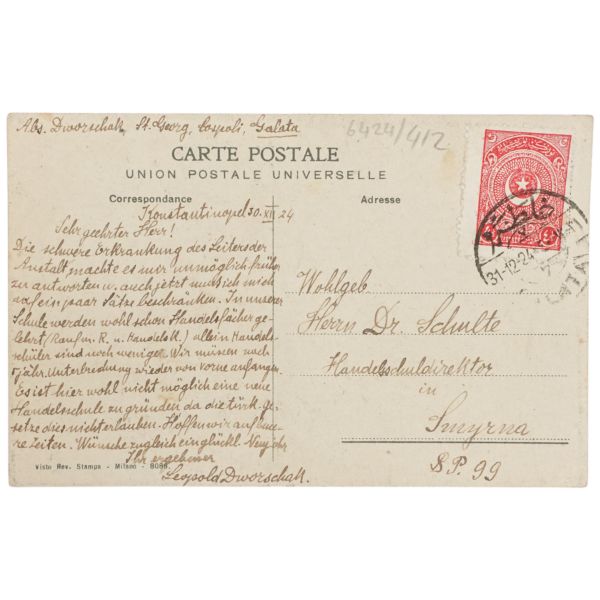 Abs. Dworschak, St. Georg, Cospoli, Galata
6424/412
CARTE POSTALE
UNION POSTALE UNIVERSELLE
Correspondance
Adresse
Konstantinopel 30.XII 24
Sehr geehrter Herr!
Die schwere Erkrankung des Leiters der
Anstalt machte es mir unmöglich früher
zu antworten u. auch jetzt muss ich mich
auf ein paar Sätze beschränken. In unserer
Schule werden wohl schon Handelsfächer ge-
lehrt (Kaufm. R. u. Handelsk.) allein Handels-
schüler sind noch weniger. Wir müssen nach
5jähr. Unterbrechung wieder von vorne anfangen.
Es ist hier wohl nicht möglich eine neue
Handelsschule zu gründen da die türk. Ge-
setze dies nicht erlauben. Hoffen wir auf bess-
ere Zeiten. Wünsche zugleich ein glückl. Neujahr
Ihr ergebener
Leopold Dworschak.
Visto Rev. Stampa - Milano - 8088.
31-12-24
GALATA
Wohlgeb
Herrn Dr. Schulte
Handelsschuldirektor
in
Smyrna
S.P. 99